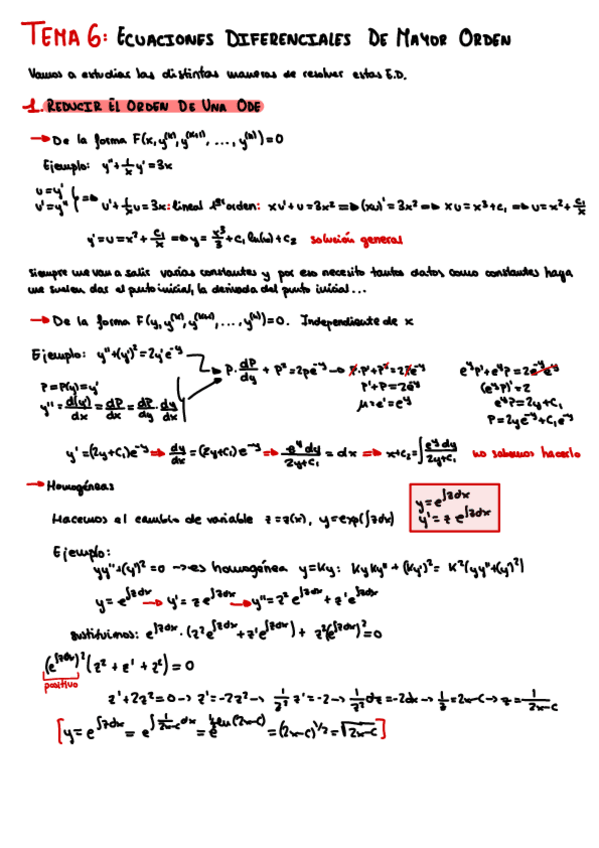 TEMA 6: ECUACIONES DIFERENCIALES DE MAYOR ORDEN
Vamos a estudiar las distintas maneras de resolver estas E.D.
1. REDUCIR EL ORDEN DE UNA ODE
→ De la forma F(x, y^(k), y^(k+1), ..., y^(n)) = 0
Ejemplo: y'' + 1/x y' = 3x
u = y'
u' = y'' } => u' + 1/x u = 3x: lineal 1er orden: xu' + u = 3x² => (xu)' = 3x² => xu = x³ + c₁ => u = x² + c₁/x
y' = u = x² + c₁/x => y = x³/3 + c₁ ln(x) + c₂ solución general
Siempre me van a salir varias constantes y por eso necesito tantos datos como constantes haya
me suelen dar el punto inicial, la derivada del punto inicial...
→ De la forma F(y, y^(k), y^(k+1), ..., y^(n)) = 0. Independiente de x
Ejemplo: y'' + (y')² = 2y'e^-y
P = P(y) = y'
y'' = d(y')/dx = dP/dx = dP/dy · dy/dx
P · dP/dy + P² = 2pe^-y → P·P' + P² = 2Pe^-y
P' + P = 2e^-y
μ = e' = e^y
e^y P' + e^y P = 2e^-y e^y
(e^y P)' = 2
e^y P = 2y + C₁
P = 2ye^-y + C₁e^-y
y' = (2y + C₁)e^-y => dy/dx = (2y + C₁)e^-y => e^y dy/2y+C₁ = dx => x + c₂ = ∫ e^y dy/2y+C₁ no sabemos hacerlo
→ Homogéneas
Hacemos el cambio de variable z = z(x), y = exp(∫zdx)
y = e^∫zdx
y' = z e^∫zdx
Ejemplo:
yy'' + (y')² = 0 → es homogénea y = Ky: KyKy'' + (Ky')² = K²(yy'' + (y')²)
y = e^∫zdx → y' = z e^∫zdx → y'' = z² e^∫zdx + z' e^∫zdx
sustituimos: e^∫zdx · (z² e^∫zdx + z' e^∫zdx) + z²(e^∫zdx)² = 0
(e^∫zdx)² (z² + z' + z²) = 0
positivo
z' + 2z² = 0 → z' = -2z² → 1/z² z' = -2 → 1/z² dz = -2dx → 1/z = 2x - C → z = 1/2x-C
[y = e^∫zdx = e^∫1/2x-c dx = e^½ ln(2x-c) = (2x-c)^1/2 = √2x-c]